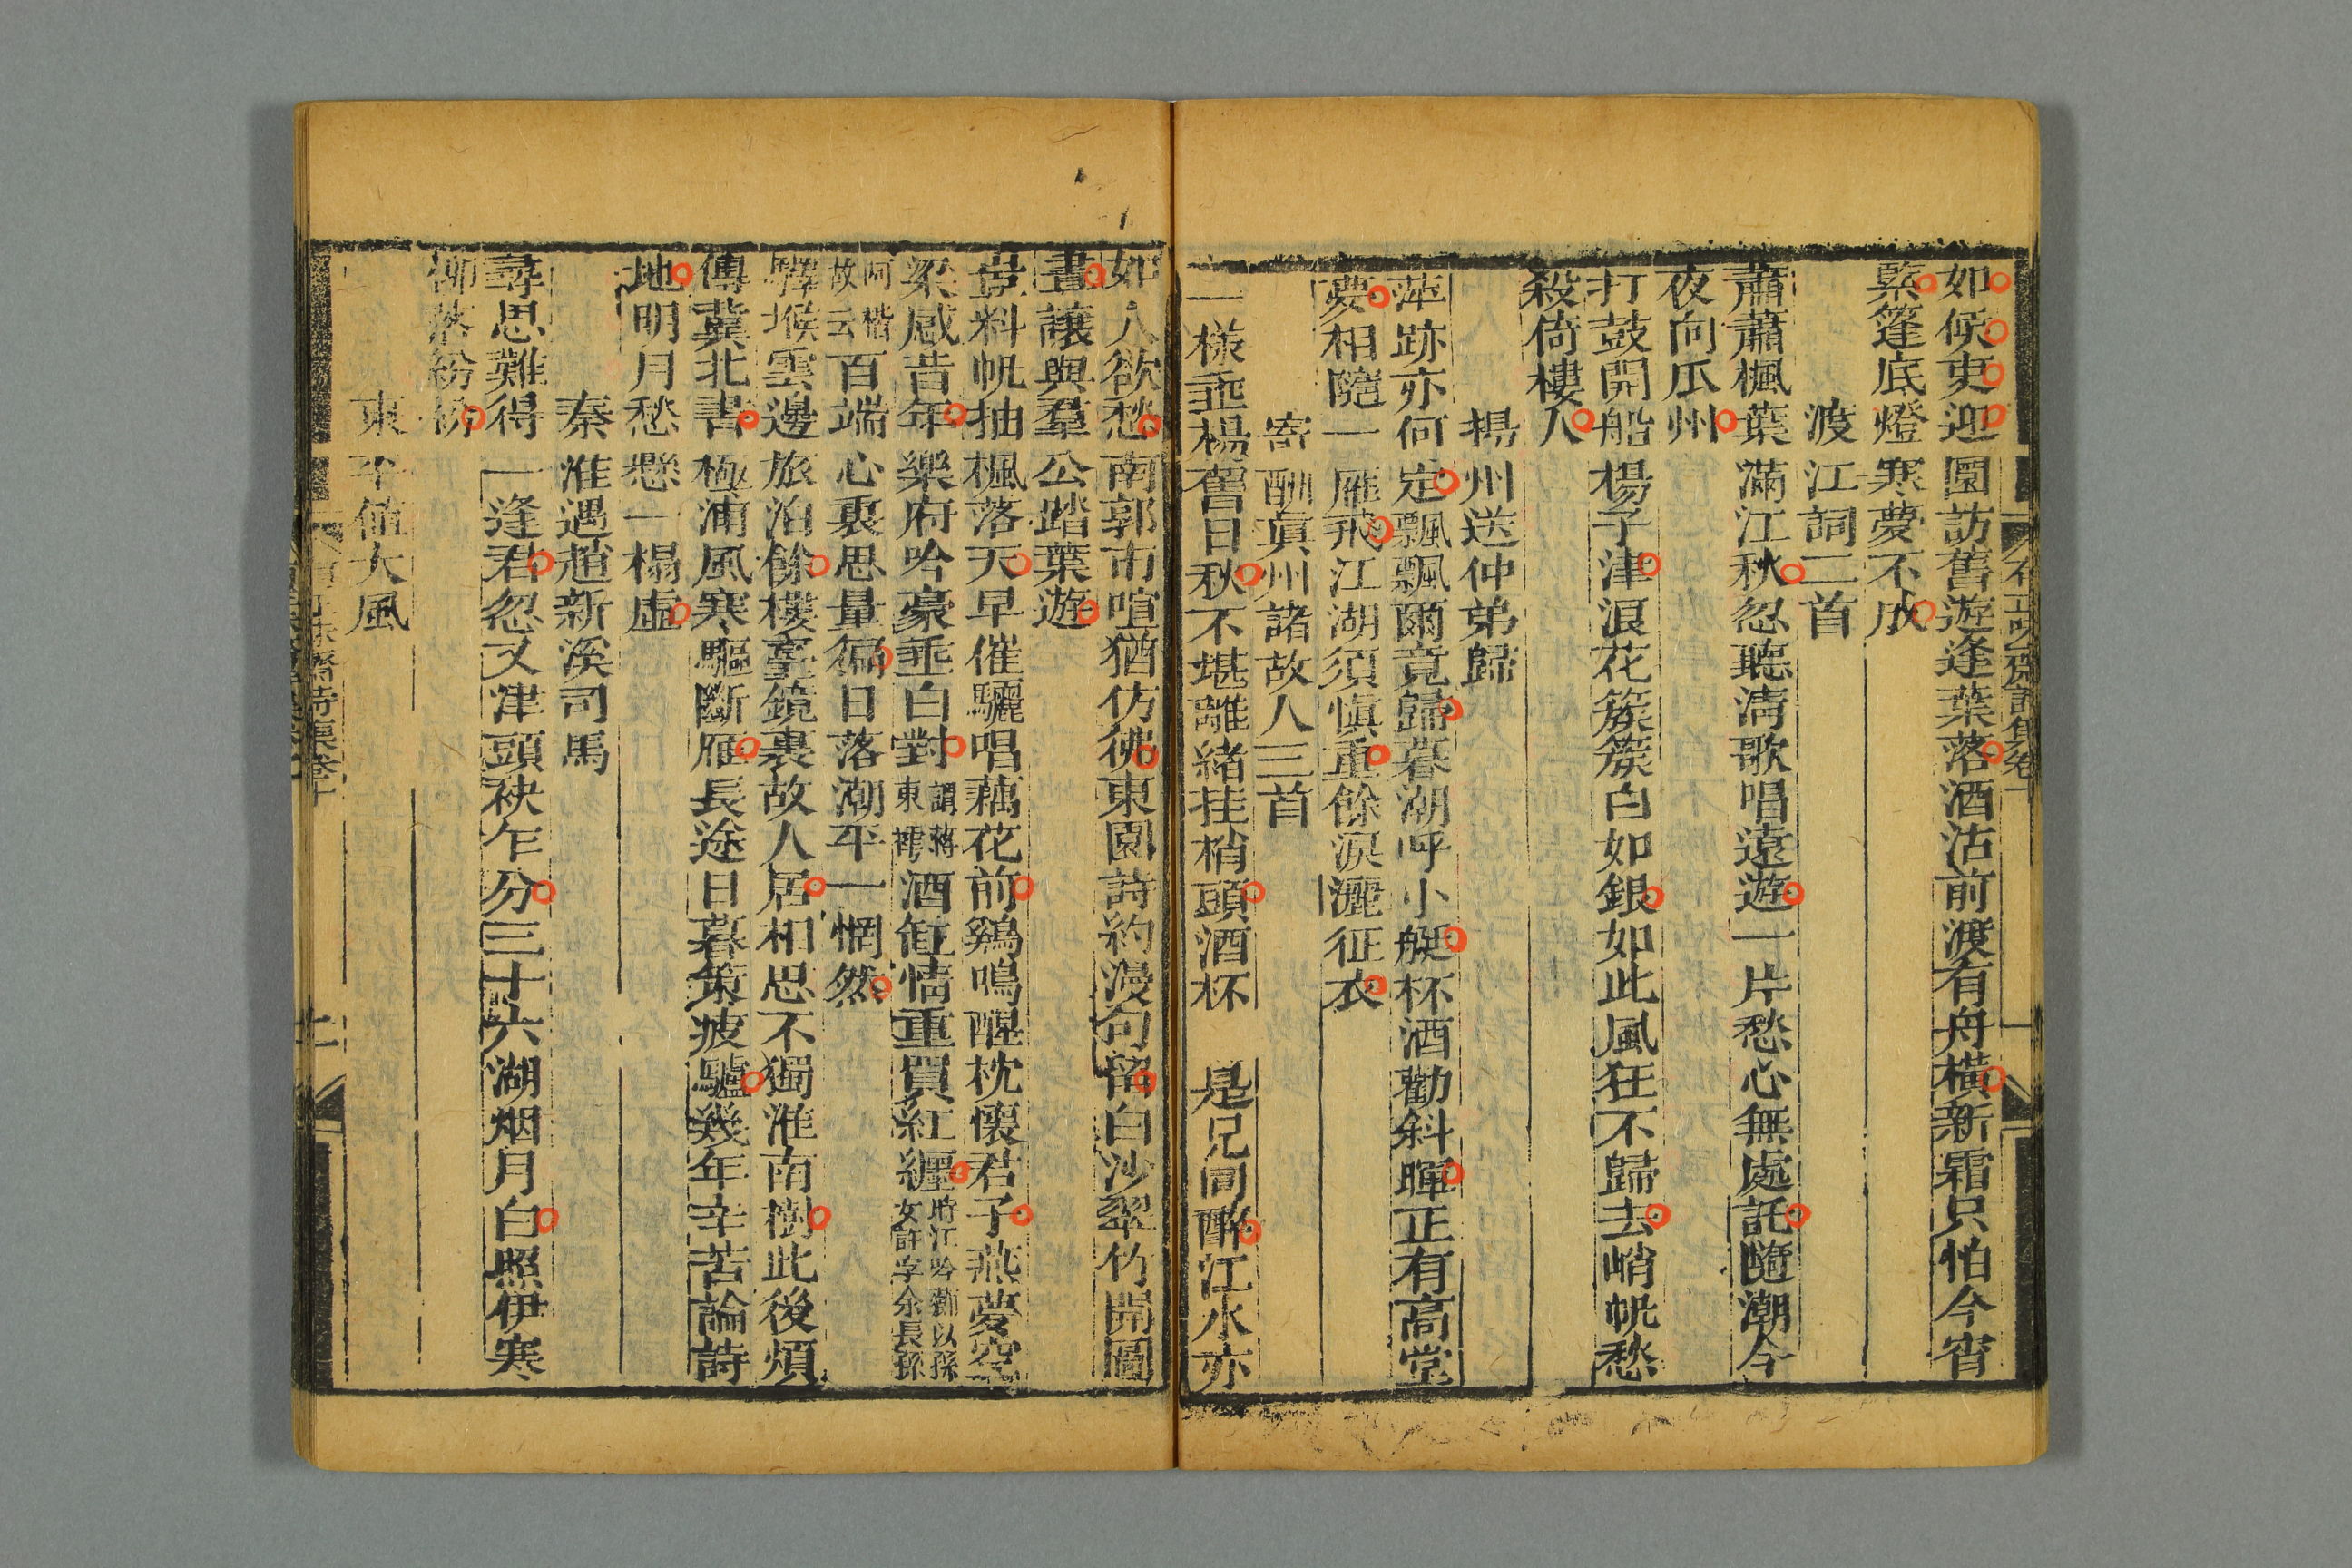 如候吏迎園訪舊遊逢葉落酒沽前渡有舟橫新霜只怕今宵
緊篷底燈寒夢不成
渡江詞二首
蕭蕭楓葉滿江秋忽聽清歌唱遠遊一片愁心無處託隨潮今
夜向瓜州
打鼓開船楊子津浪花簇簇白如銀如此風狂不歸去峭帆愁
殺倚樓人
揚州送仲弟歸
萍跡亦何定飄飄爾竟歸暮潮呼小艇杯酒勸斜暉正有高堂
夢相隨一雁飛江湖須慎重餘淚灑征衣
寄酬眞州諸故人三首
一樣垂楊舊日秋不堪離緒挂梢頭酒杯是兄同醉江水亦
如人欲愁南郭市喧猶仿彿東園詩約漫句留白沙翠竹開圖
畫讓與羣公踏葉遊
豈料帆抽楓落天早催驪唱藕花前鷄鳴醒枕懷君子燕夢空
梁感昔年樂府吟豪垂白對謂蔣東樗酒垆情重買紅纒時江吟薌以孫女許字余長孫
阿楷故云百端心裏思量徧日落潮平一惘然
驛堠雲邊旅泊餘樓臺鏡裏故人居相思不獨淮南樹此後煩
傳冀北書極浦風寒驅斷雁長途日暮策疲驢幾年辛苦論詩
地明月愁懸一榻虛
秦淮遇趙新溪司馬
尋思難得一逢君忽又津頭袂乍分三十六湖烟月白照伊寒
柳落紛紛
東平値大風